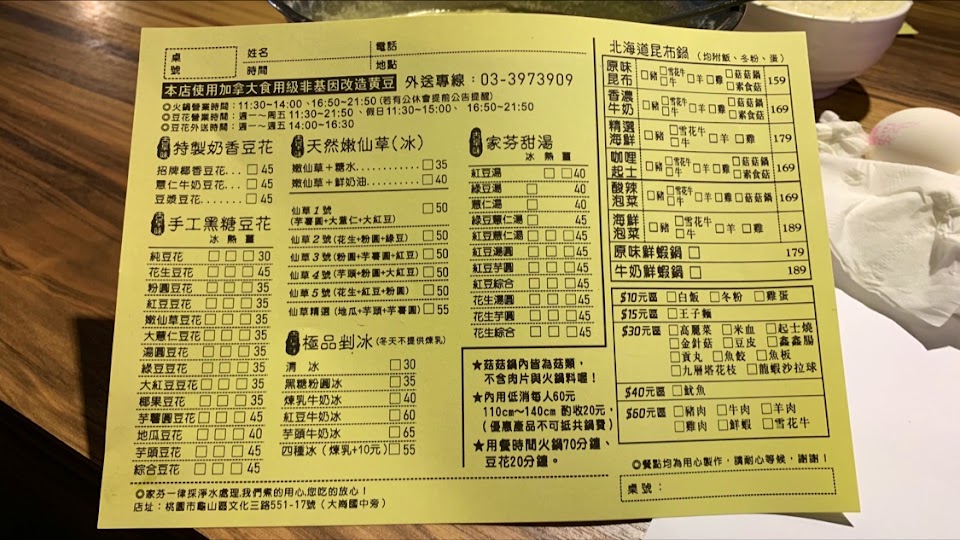 桌號
姓名
電話
時間
地點
本店使用加拿大食用級非基因改造黃豆
外送專線：03-3973909
◎火鍋營業時間：11:30~14:00、16:50~21:50(若有公休會提前公告提醒)
◎豆花營業時間：週一~週五11:30~21:50、假日11:30~15:00、16:50~21:50
◎豆花外送時間：週一~週五14:00~16:30
特製奶香豆花
招牌椰香豆花...□45
薏仁牛奶豆花...□45
豆漿豆花.......□45
手工黑糖豆花
冰 熱 薑
純豆花 □□□30
花生豆花 □□□45
粉圓豆花 □□□45
紅豆豆花 □□□45
嫩仙草豆花□□□45
大薏仁豆花□□□45
湯圓豆花 □□□45
綠豆豆花 □□□45
大紅豆豆花□□□45
椰果豆花 □□□45
芋薯圓豆花□□□45
地瓜豆花 □□□40
芋頭豆花 □□□45
綜合豆花 □□□45
天然嫩仙草(冰)
嫩仙草+糖水...........□35
嫩仙草+鮮奶油.........□40
仙草1號 □50
(芋薯圓+大薏仁+大紅豆)
仙草2號(花生+粉圓+綠豆) □50
仙草3號(粉圓+芋薯圓+紅豆)□50
仙草4號(芋頭+粉圓+大紅豆)□50
仙草5號(花生+紅豆+粉圓) □50
仙草精選(地瓜+芋頭+芋薯圓)□55
極品剉冰(冬天不提供煉乳)
清 冰 □30
黑糖粉圓冰 □35
煉乳牛奶冰 □40
紅豆牛奶冰 □60
芋頭牛奶冰 □65
四種冰(煉乳+10元)□55
家芬甜湯
冰 熱 薑
紅豆湯 □□40
綠豆湯 □ 40
薏仁湯 □ 40
綠豆薏仁湯 □ 45
紅豆薏仁湯 □□□45
紅豆湯圓 □□□45
紅豆芋圓 □□□45
紅豆綜合 □□□45
花生湯圓 □□□45
花生芋圓 □□□45
花生綜合 □□□45
★菇菇鍋內皆為菇類，
不含肉片與火鍋料喔！
★內用低消每人60元
110cm~140cm 酌收20元，
(優惠產品不可抵共鍋費)
★用餐時間火鍋70分鐘、
豆花20分鐘。
北海道昆布鍋(均附飯、冬粉、蛋)
原味昆布 □豬□雪花牛□牛□羊□雞□菇菇鍋□素食菇 159
香濃牛奶 □豬□雪花牛□牛□羊□雞□菇菇鍋□素食菇 169
精選海鮮 □豬□雪花牛□牛□羊□雞 179
咖哩起士 □豬□雪花牛□牛□羊□雞□菇菇鍋□素食菇 169
酸辣泡菜 □豬□雪花牛□牛□羊□雞□菇菇鍋 169
海鮮泡菜 □豬□雪花牛□牛□羊□雞 189
原味鮮蝦鍋□ 179
牛奶鮮蝦鍋□ 189
$10元區 □白飯 □冬粉 □雞蛋
$15元區 □王子麵
$30元區 □高麗菜 □米血 □起士燒
□金針菇 □豆皮 □鑫鑫腸
□貢丸 □魚餃 □魚板
□九層塔花枝 □龍蝦沙拉球
$40元區 □魷魚
$60元區 □豬肉 □牛肉 □羊肉
□雞肉 □鮮蝦 □雪花牛
◎餐點均為用心製作，請耐心等候，謝謝！
桌號：
◎家芬一律採淨水處理,我們煮的用心,您吃的放心！
店址：桃園市龜山區文化三路551-17號(大崗國中旁)